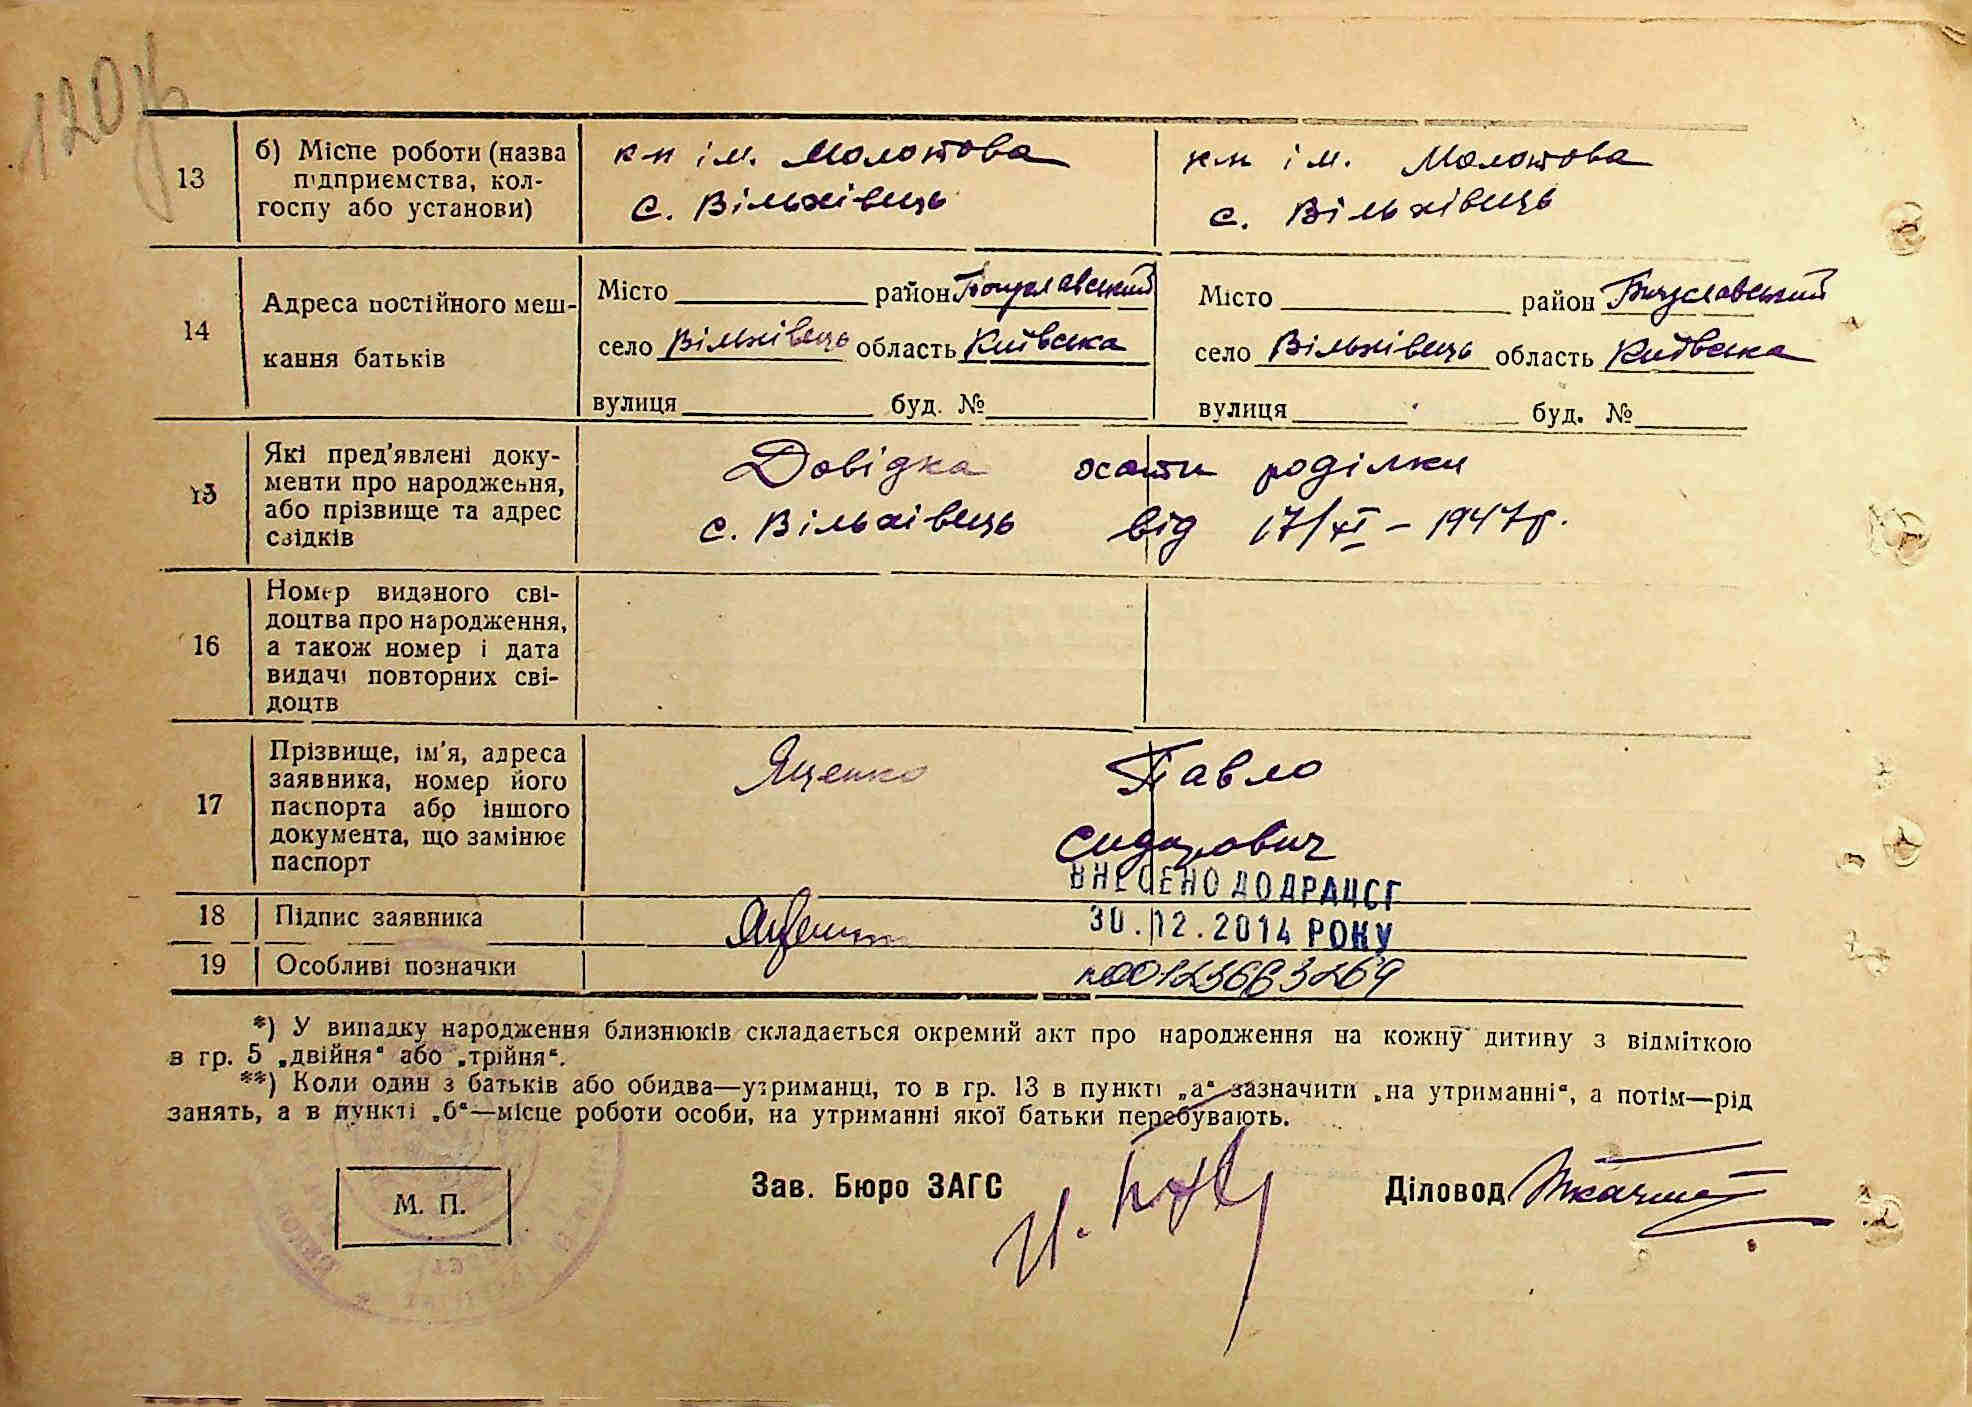 120
13
б) Місце роботи (назва
підприємства, кол-
госпу або установи)
к-п ім. Молотова
с. Вільхівець
к-п ім. Молотова
с. Вільхівець
14
Адреса постійного меш-
кання батьків
Місто район Богуславський
село Вільхівець область Київська
вулиця буд. №
Місто район Богуславський
село Вільхівець область Київська
вулиця буд. №
15
Які пред'явлені доку-
менти про народження,
або прізвище та адрес
свідків
Довідка хати роділки
с. Вільхівець від 17/XI – 1947р.
16
Номер виданого сві-
доцтва про народження,
а також номер і дата
видачі повторних сві-
доцтв
17
Прізвище, ім'я, адреса
заявника, номер його
паспорта або іншого
документа, що замінює
паспорт
Яценко Павло
Сидорович
ВНЕСЕНО ДО ДРАЦСГ
18
Підпис заявника
Яценко
30.12.2014 РОКУ
19
Особливі позначки
№00123663269
*) У випадку народження близнюків складається окремий акт про народження на кожну дитину з відміткою
в гр. 5 „двійня“ або „трійня“.
**) Коли один з батьків або обидва—утриманці, то в гр. 13 в пункті „а“ зазначити „на утриманні“, а потім—рід
занять, а в пункті „б“—місце роботи особи, на утриманні якої батьки перебувають.
М. П.
Зав. Бюро ЗАГС
Діловод